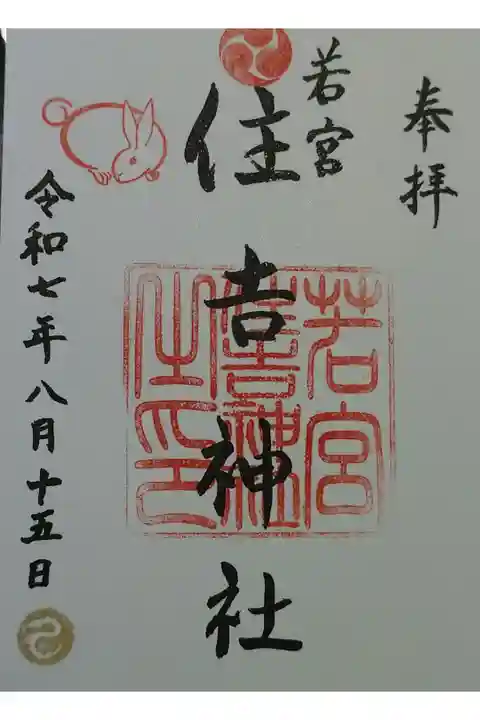 奉拝
若宮
住吉神社
若宮
住吉神社
之印
令和七年八月十五日
巳